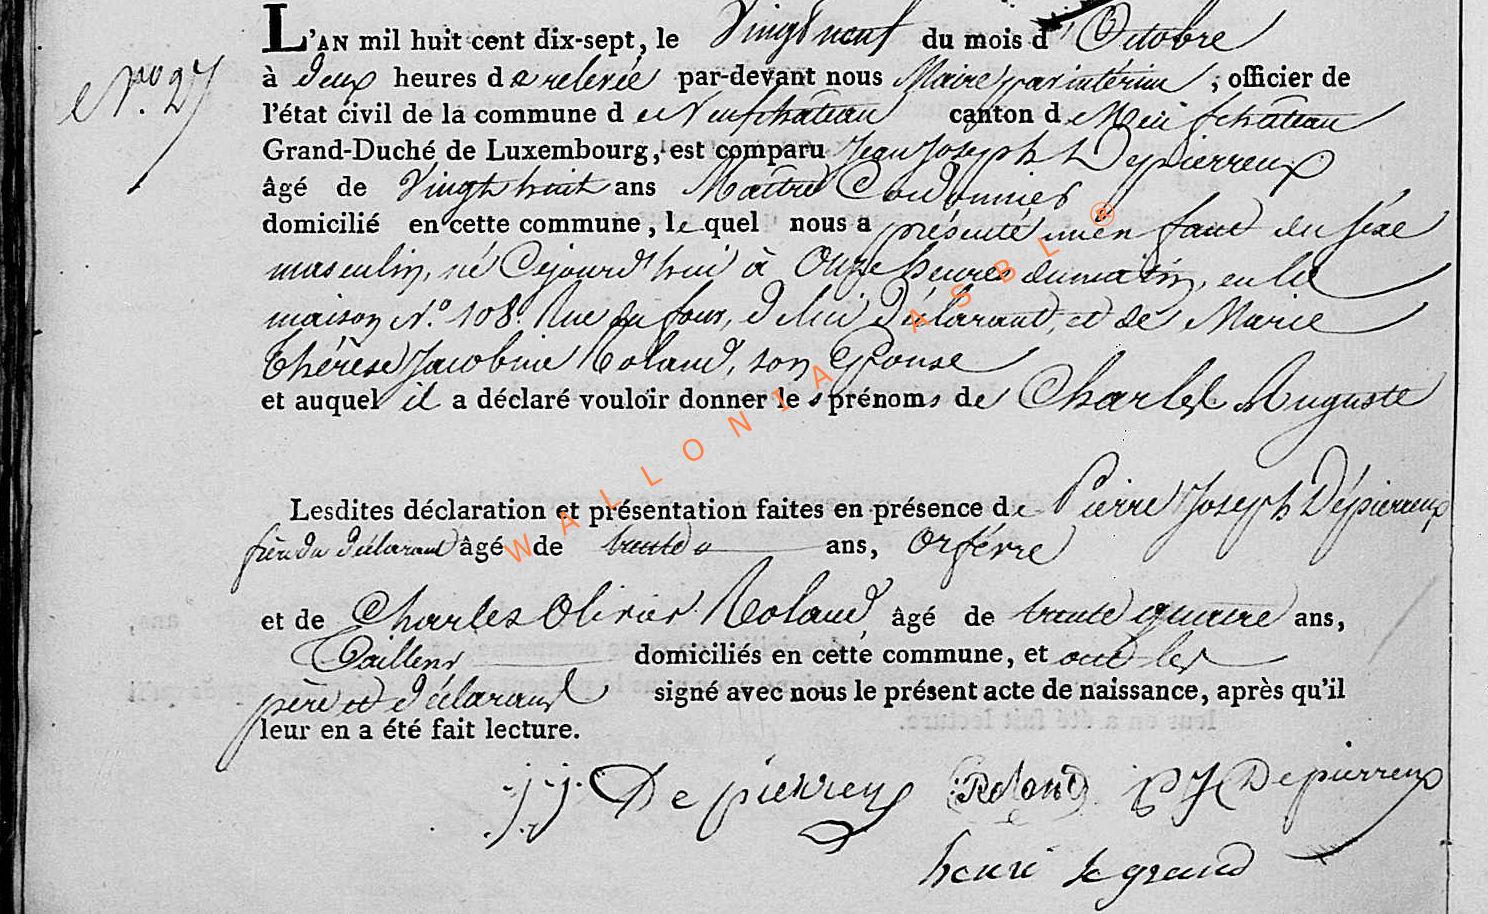 L'AN mil huit cent dix-sept, le Vingt neuf du mois d'Octobre
N.° 27
à deux heures de relevée par-devant nous Maire par intérim, officier de
l'état civil de la commune de Neufchateau canton de Neufchateau
Grand-Duché de Luxembourg, est comparu Jean Joseph Depierreux
âgé de Vingt huit ans Maître Cordonnier
domicilié en cette commune, lequel nous a présenté un enfant du séxe
masculin, né Cejourd'hui à Onze heures du matin, en la
maison N.° 108. Rue du four, de lui déclarant, et de Marie
thérèse Jacobine Roland, son Epouse
et auquel il a déclaré vouloir donner les prénoms de Charles Auguste
Lesdites déclaration et présentation faites en présence de Pierre Joseph Dépierreux
frère du déclarant âgé de trente ans, Orfévre
et de Charles Olivier Roland, âgé de trente quatre ans,
Tailleur domiciliés en cette commune, et ont les
père et déclarant signé avec nous le présent acte de naissance, après qu'il
leur en a été fait lecture.
JJ. Depierreux Roland PJ Depierreux
henri legrand
WALLONIA ASBL ®